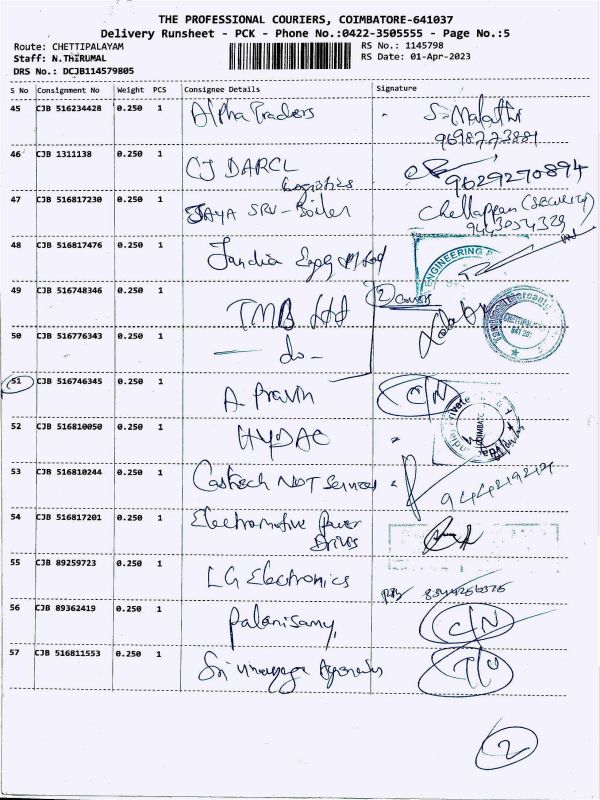 THE PROFESSIONAL COURIERS, COIMBATORE-641037
Delivery Runsheet - PCK - Phone No.:0422-3505555 - Page No.:5
Route: CHETTIPALAYAM RS No.: 1145798
Staff: N.THIRUMAL RS Date: 01-Apr-2023
DRS No.: DCJB114579805
S No Consignment No Weight PCS Consignee Details Signature
45 CJB 516234428 0.250 1 Alpha Traders S. Malathi
46 CJB 1311138 0.250 1 CJ DARCL
Logistics 9629270894
47 CJB 516817230 0.250 1 JAYA SRV - Boiler Chellappan (Security)
48 CJB 516817476 0.250 1
ENGINEERING
49 CJB 516748346 0.250 1 TMB Ltd 2 Covers
CHETTIPALAYAM
50 CJB 516776343 0.250 1 - do -
51 CJB 516746345 0.250 1 A Pravin C/N
52 CJB 516810050 0.250 1 HYDAC
COIMBATORE
53 CJB 516810244 0.250 1 Castech NDT Services
54 CJB 516817201 0.250 1 Electromotive Power
Drives
55 CJB 89259723 0.250 1 LG Electronics
56 CJB 89362419 0.250 1 Palanisamy, C/N
57 CJB 516811553 0.250 1 Sri Vinayaga Agencies
2